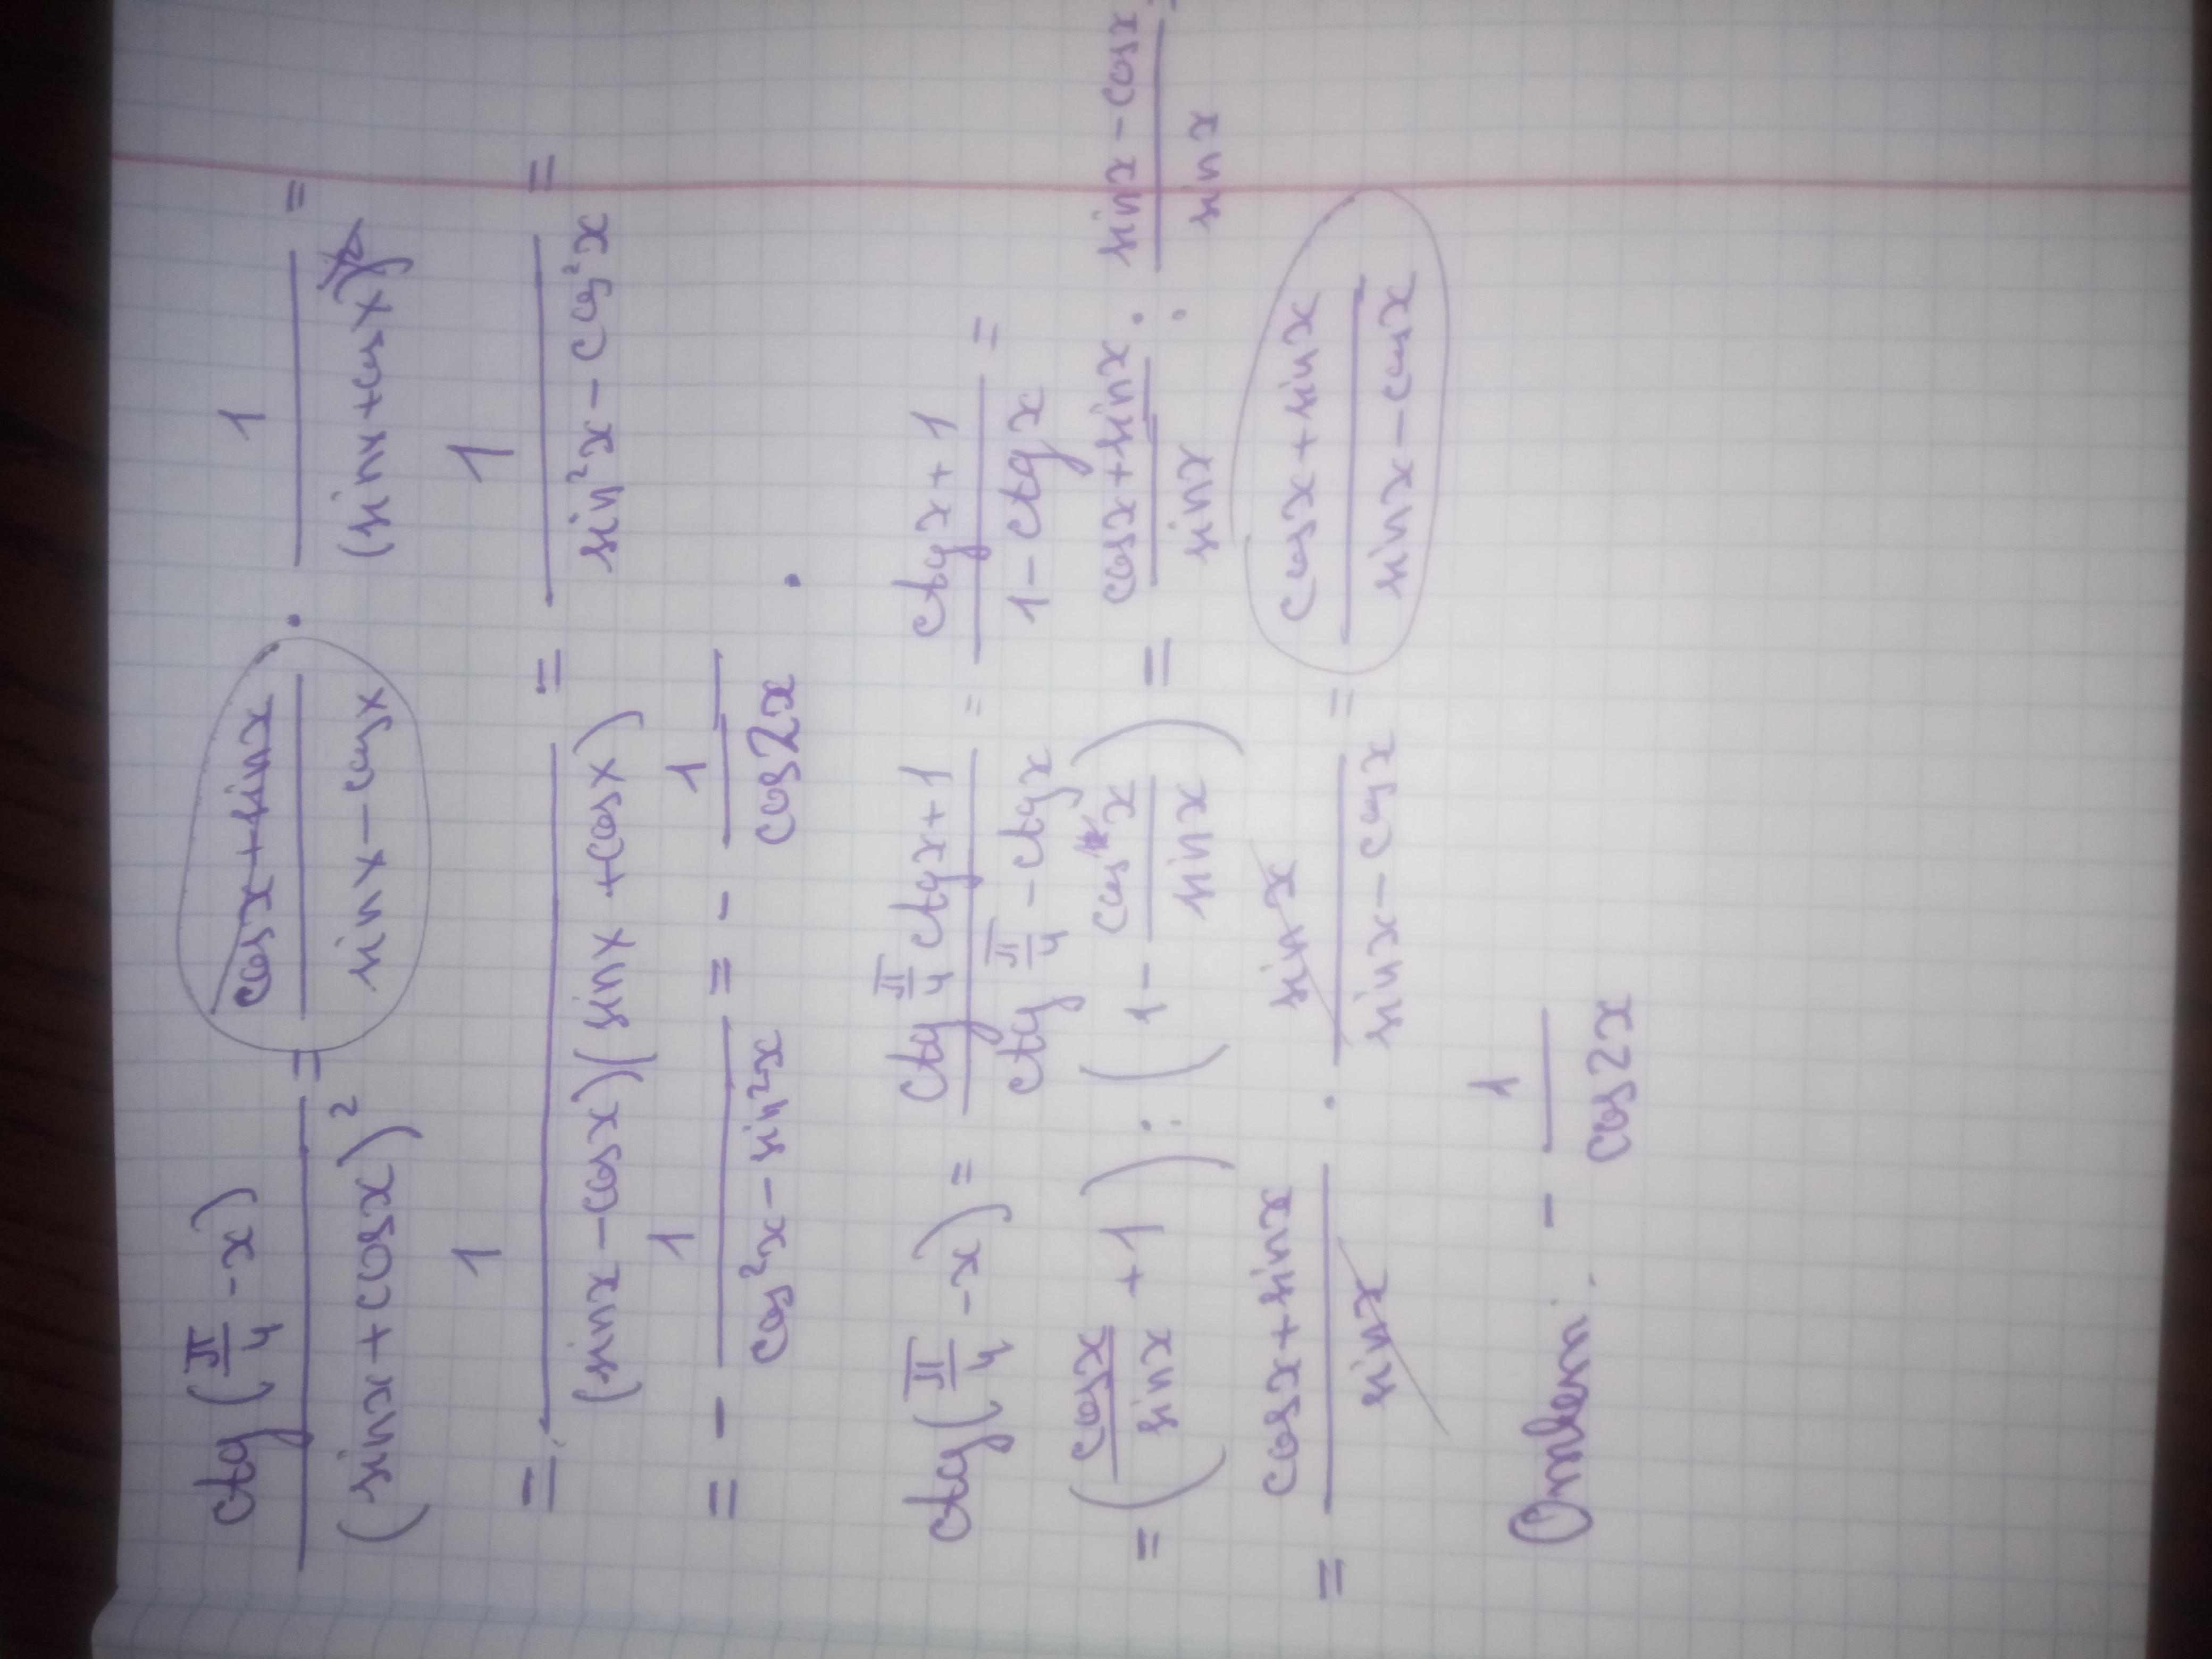 ctg(π/4 - x) / (sinx + cosx)² = (cosx + sinx)/(sinx - cosx) · 1/(sinx + cosx) =
= 1/((sinx - cosx)(sinx + cosx)) = 1/(sin²x - cos²x) =
= - 1/(cos²x - sin²x) = - 1/cos2x .
ctg(π/4 - x) = (ctg π/4 ctgx + 1)/(ctg π/4 - ctgx) = (ctgx + 1)/(1 - ctgx) =
= (cosx/sinx + 1) : (1 - cosx/sinx) = (cosx + sinx)/sinx : (sinx - cosx)/sinx =
= (cosx + sinx)/sinx · sinx/(sinx - cosx) = (cosx + sinx)/(sinx - cosx)
Ответ: - 1/cos2x